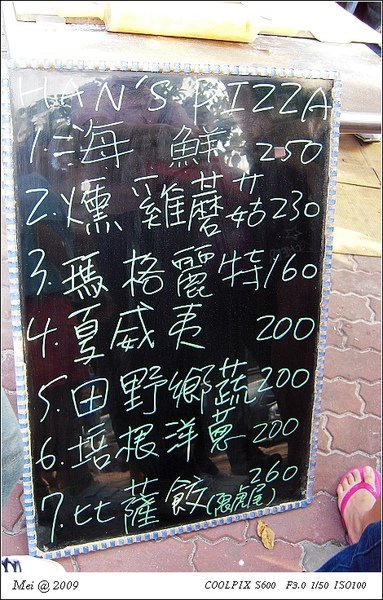 HAN'S PIZZA
1.海鮮 250
2.燻雞蘑菇230
3.瑪格麗特160
4.夏威夷 200
5.田野鄉蔬200
6.培根洋蔥 200
7.比薩餃 260
Mei @ 2009 COOLPIX S600 F3.0 1/50 ISO100